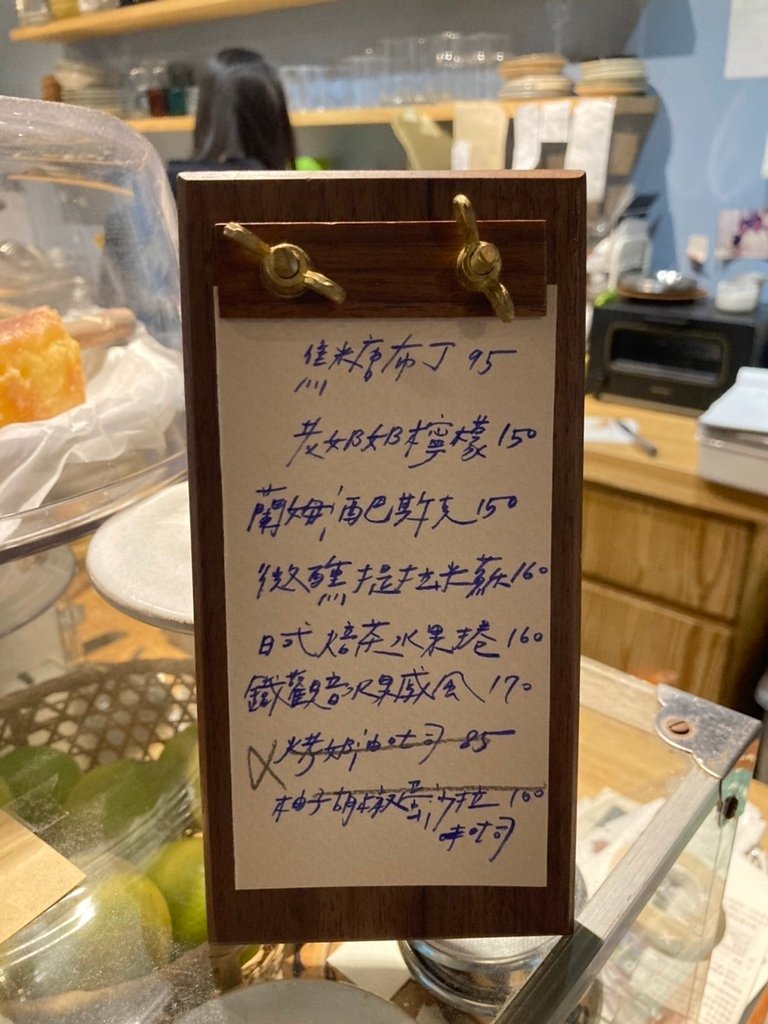 焦糖布丁 95
老奶奶檸檬 150
蘭姆酒巴斯克 150
微醺提拉米蘇 160
日式焙茶水果捲 160
鐵觀音水果戚風 170
烤奶油吐司 85
柚子胡椒蛋沙拉 160
吐司